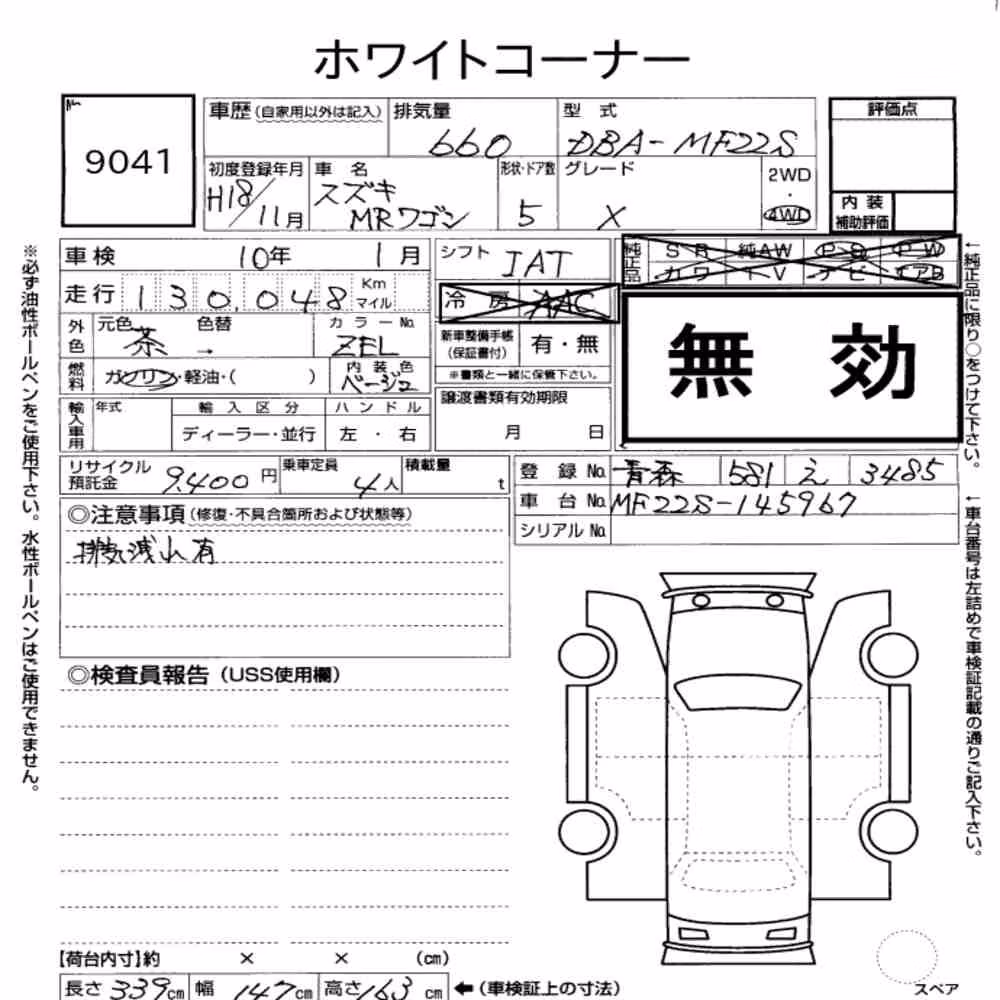 ホワイトコーナー
No.
9041
車歴 (自家用以外は記入)
排気量
660
型 式
DBA-MF22S
評価点
初度登録年月
H18/11月
車 名
スズキ
MRワゴン
形状・ドア数
5
グレード
X
2WD
・
4WD
内 装
補助評価
車検 10年 1月
シフト IAT
純正品
SR 純AW PS PW
カワ TV ナビ エアB
走行 130,048 Km マイル
冷 房 AAC
無 効
外色
元色 茶 → 色替
カラーNo. ZEL
新車整備手帳
(保証書付)
有・無
※書類と一緒に保管下さい。
燃料
ガソリン・軽油・( )
内装色
ベージュ
譲渡書類有効期限
月 日
輸入車用
年式
輸入区分
ディーラー・並行
ハンドル
左・右
リサイクル
預託金
9,400円
乗車定員
4人
積載量
t
登録No. 青森 581 え 3485
車台No. MF22S-145967
シリアルNo.
◎注意事項 (修復・不具合箇所および状態等)
排気洩れ有
◎検査員報告 (USS使用欄)
【荷台内寸】約 × × (cm)
長さ 339cm 幅 147cm 高さ 163cm ←(車検証上の寸法)
スペア
※必ず油性ボールペンをご使用下さい。水性ボールペンはご使用できません。
↑純正品に限り○をつけて下さい。
↑車台番号は左詰めで車検証記載の通りご記入下さい。